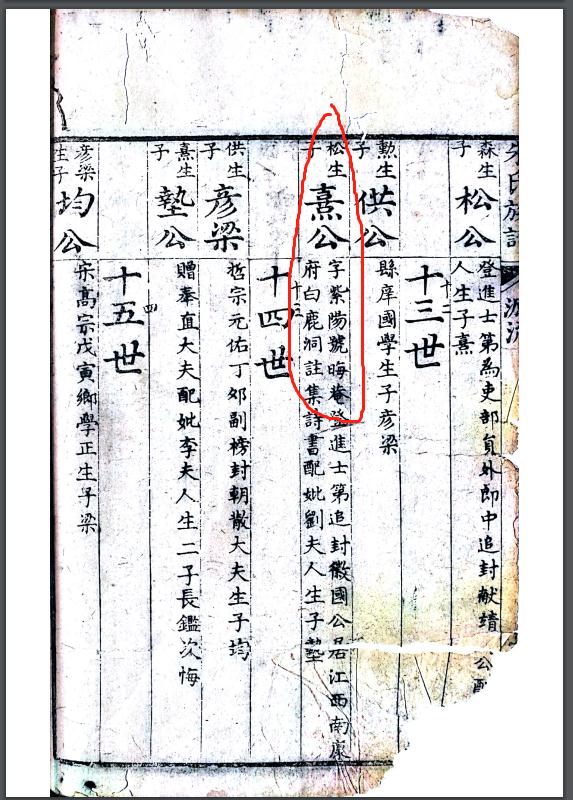 朱氏族譜 源流
森生子 松公 登進士第為吏部員外郎中追封献靖公配
人生子熹
十三世
十
勲生子 供公 縣庠國學生子彦梁
松生子 熹公 字紫陽號晦菴登進士第追封徽國公居江西南康
府白鹿洞註集詩書配妣劉夫人生子塾
十四世
十三
供生子 彦梁 哲宗元佑丁卯副榜封朝散大夫生子均
熹生子 塾公 贈奉直大夫配妣李夫人生二子長鑑次悔
十五世
四
彦梁生子 均公 宋高宗戊寅鄉學正生子梁